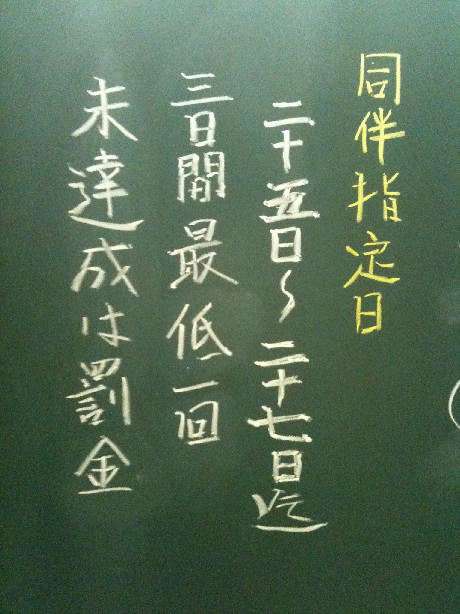 同伴指定日
二十五日〜二十七日迄
三日間最低一回
未達成は罰金